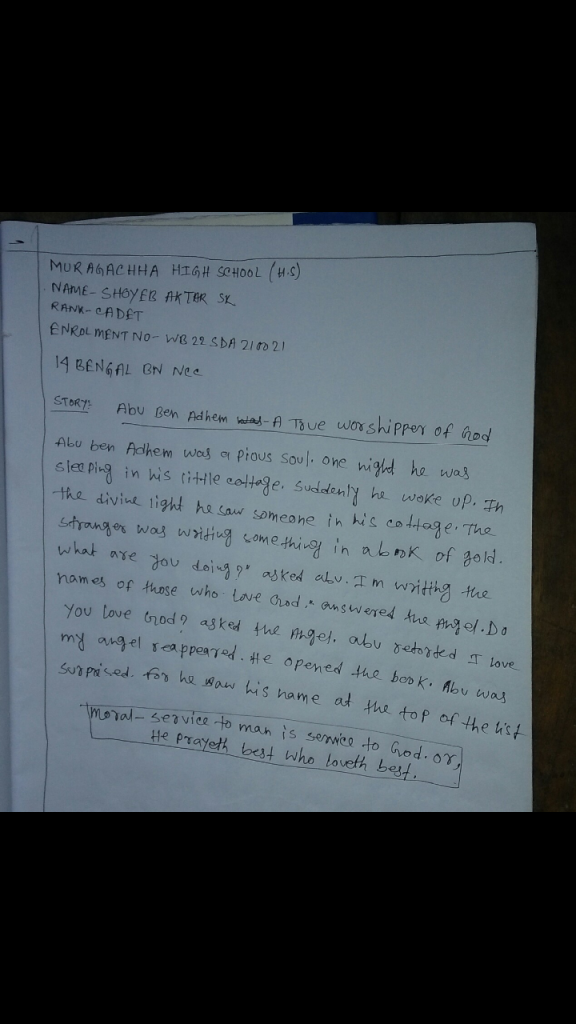 MURAGACHHA HIGH SCHOOL (H.S)
NAME- SHOYEB AKTAR SK
RANK- CADET
ENROLMENT NO- WB 22 SDA 210021
14 BENGAL BN NCC
STORY: Abu Ben Adhem was - A True worshipper of God
Abu ben Adhem was a pious soul. one night he was
sleeping in his little cottage. suddenly he woke up. In
the divine light he saw someone in his cottage. The
stranger was writing something in a book of gold.
what are you doing?" asked abu. I m writing the
names of those who love God." answered the Angel. Do
you love God? asked the Angel. abu retorted I love
my angel reappeared. He opened the book. Abu was
surprised. for he saw his name at the top of the list
Moral- service to man is service to God. or,
He prayeth best who loveth best.